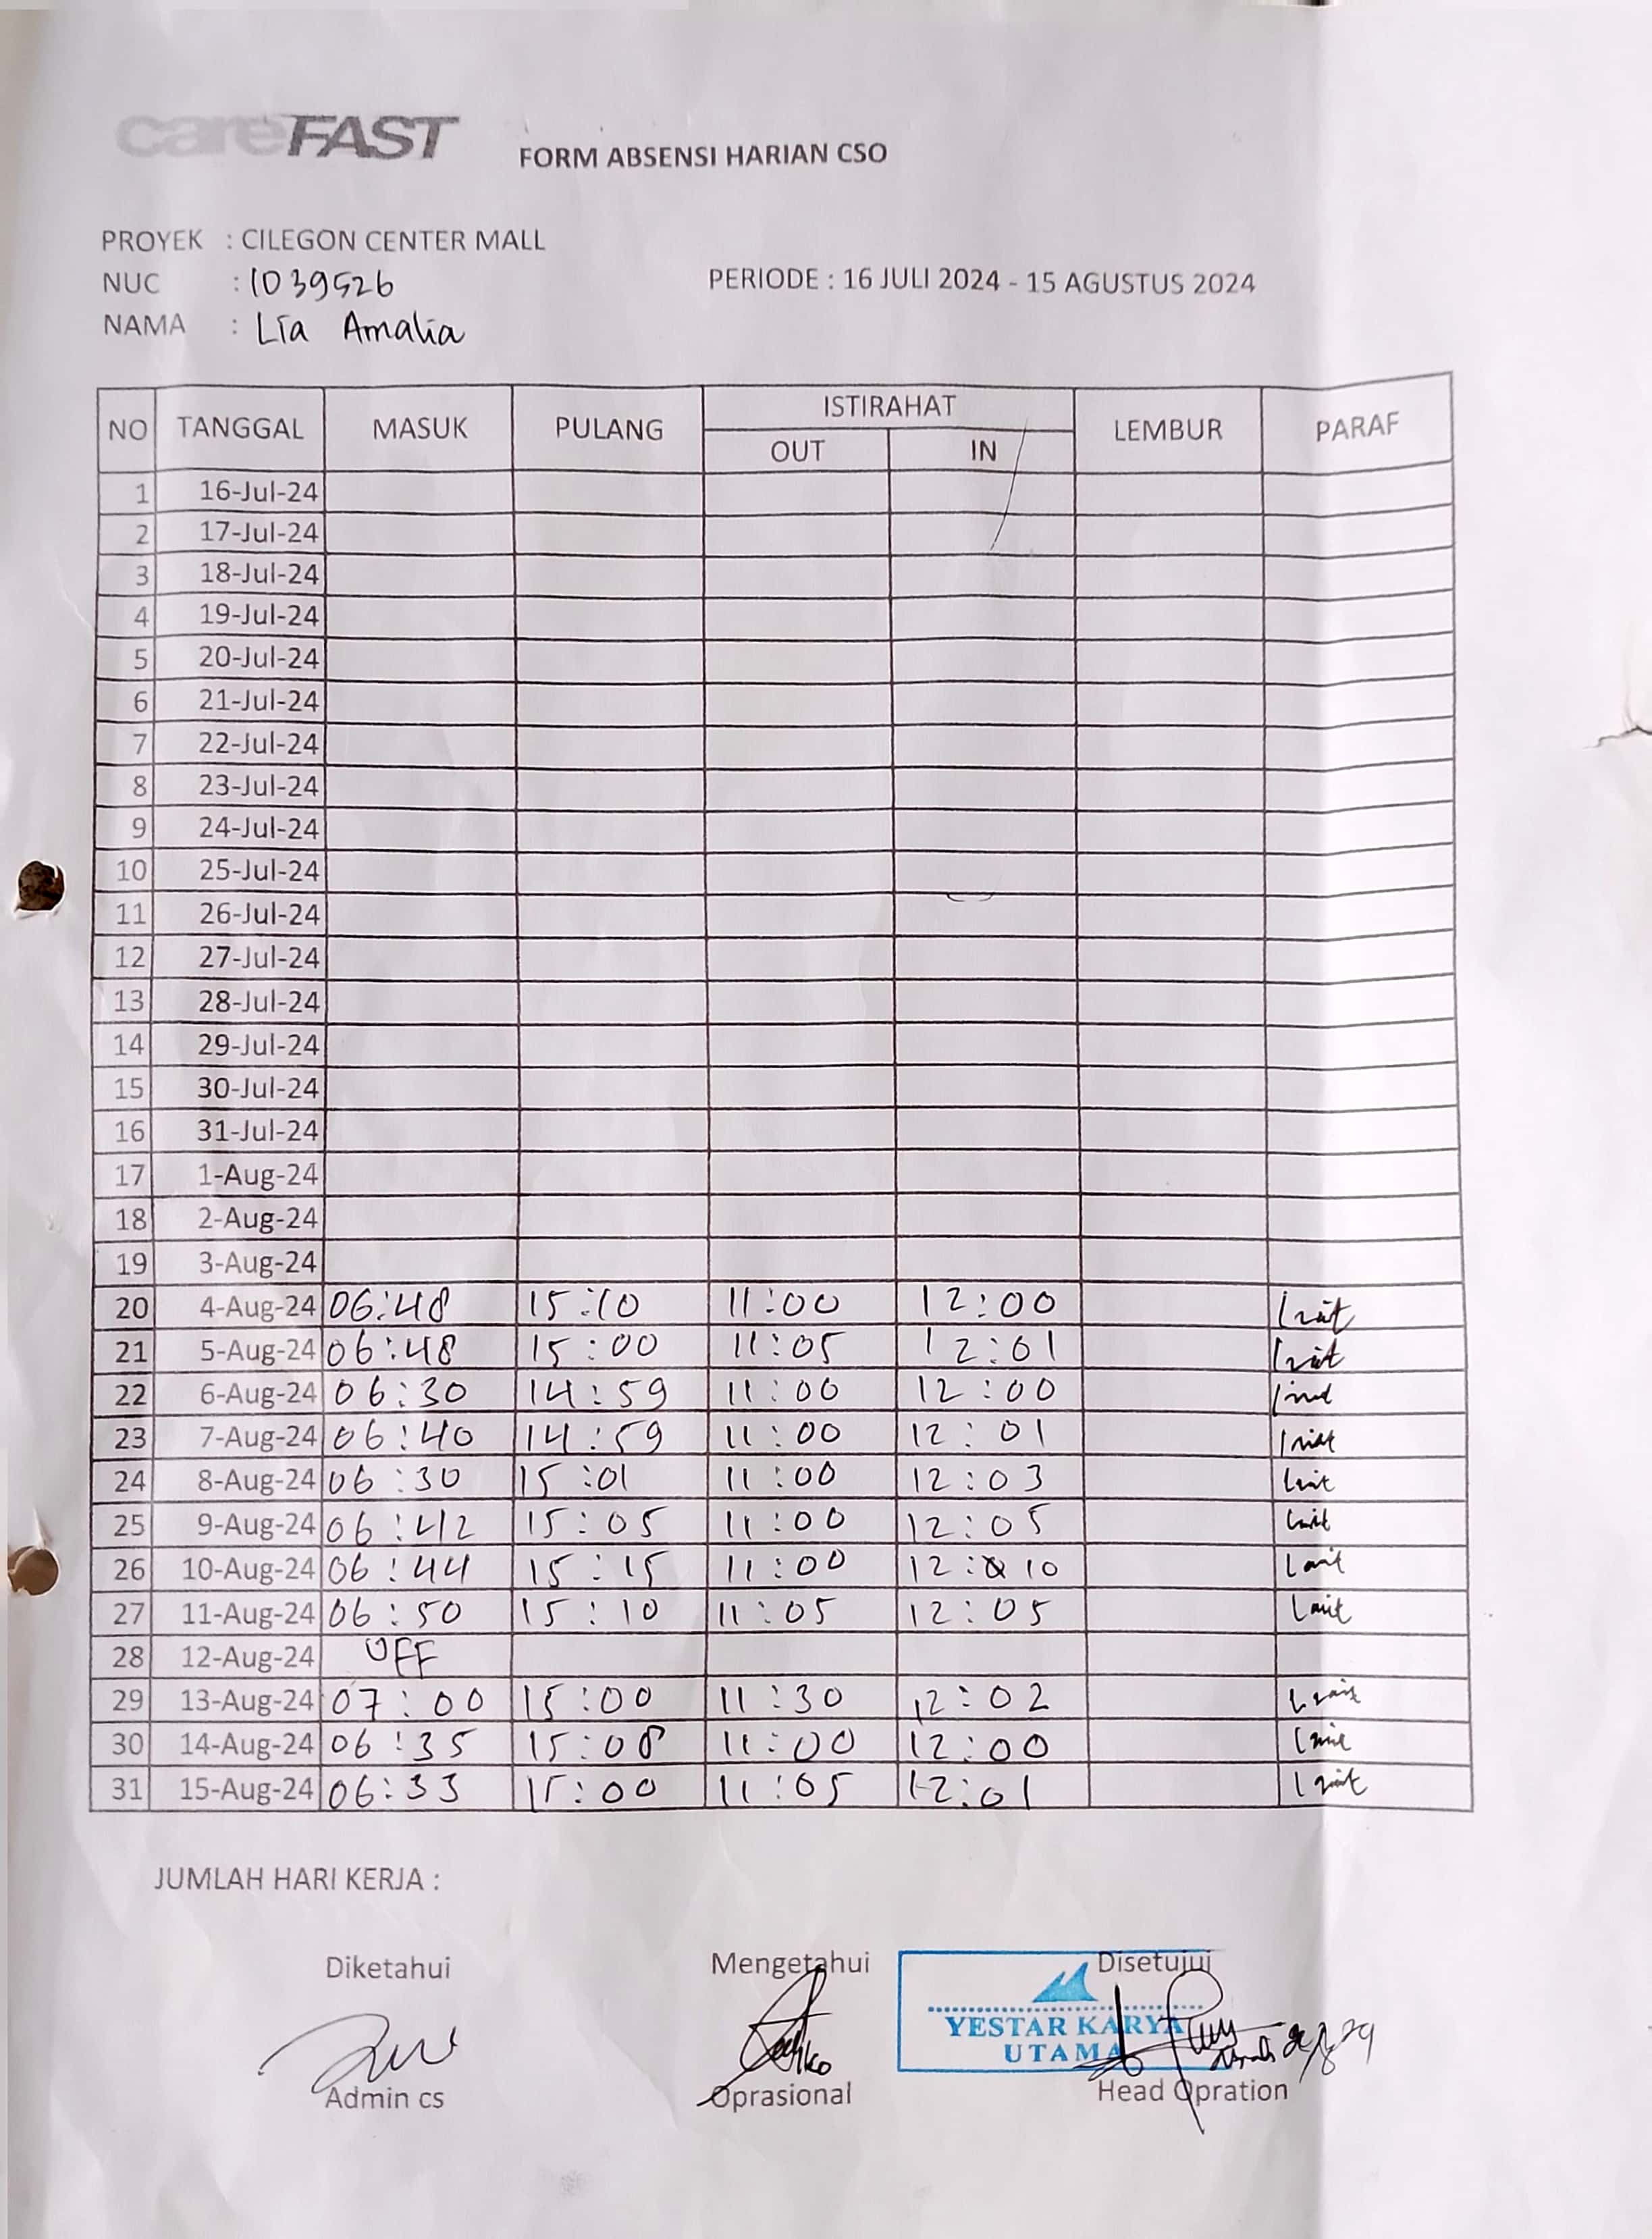 careFAST
FORM ABSENSI HARIAN CSO
PROYEK : CILEGON CENTER MALL
NUC : 1039526
PERIODE : 16 JULI 2024 - 15 AGUSTUS 2024
NAMA : Lia Amalia
NO TANGGAL MASUK PULANG ISTIRAHAT LEMBUR PARAF
OUT IN
1 16-Jul-24
2 17-Jul-24
3 18-Jul-24
4 19-Jul-24
5 20-Jul-24
6 21-Jul-24
7 22-Jul-24
8 23-Jul-24
9 24-Jul-24
10 25-Jul-24
11 26-Jul-24
12 27-Jul-24
13 28-Jul-24
14 29-Jul-24
15 30-Jul-24
16 31-Jul-24
17 1-Aug-24
18 2-Aug-24
19 3-Aug-24
20 4-Aug-24 06:48 15:10 11:00 12:00
21 5-Aug-24 06:48 15:00 11:05 12:01
22 6-Aug-24 06:30 14:59 11:00 12:00
23 7-Aug-24 06:40 14:59 11:00 12:01
24 8-Aug-24 06:30 15:01 11:00 12:03
25 9-Aug-24 06:42 15:05 11:00 12:05
26 10-Aug-24 06:44 15:15 11:00 12:10
27 11-Aug-24 06:50 15:10 11:05 12:05
28 12-Aug-24 OFF
29 13-Aug-24 07:00 15:00 11:30 12:02
30 14-Aug-24 06:35 15:08 11:00 12:00
31 15-Aug-24 06:33 15:00 11:05 12:01
JUMLAH HARI KERJA :
Diketahui Mengetahui Disetujui
YESTAR KARYA
UTAMA
Admin cs Oprasional Head Opration